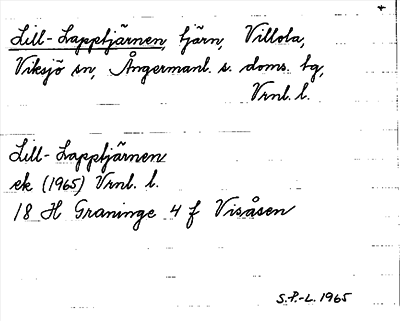 Lill-Lapptjärnen, tjärn, Villola,
Viksjö sn, Ångermanl. s. doms. tg,
Vrnl. l.
Lill-Lapptjärnen
ek (1965) Vrnl. l.
18 H Graninge 4 f Visåsen
S.P.-L. 1965